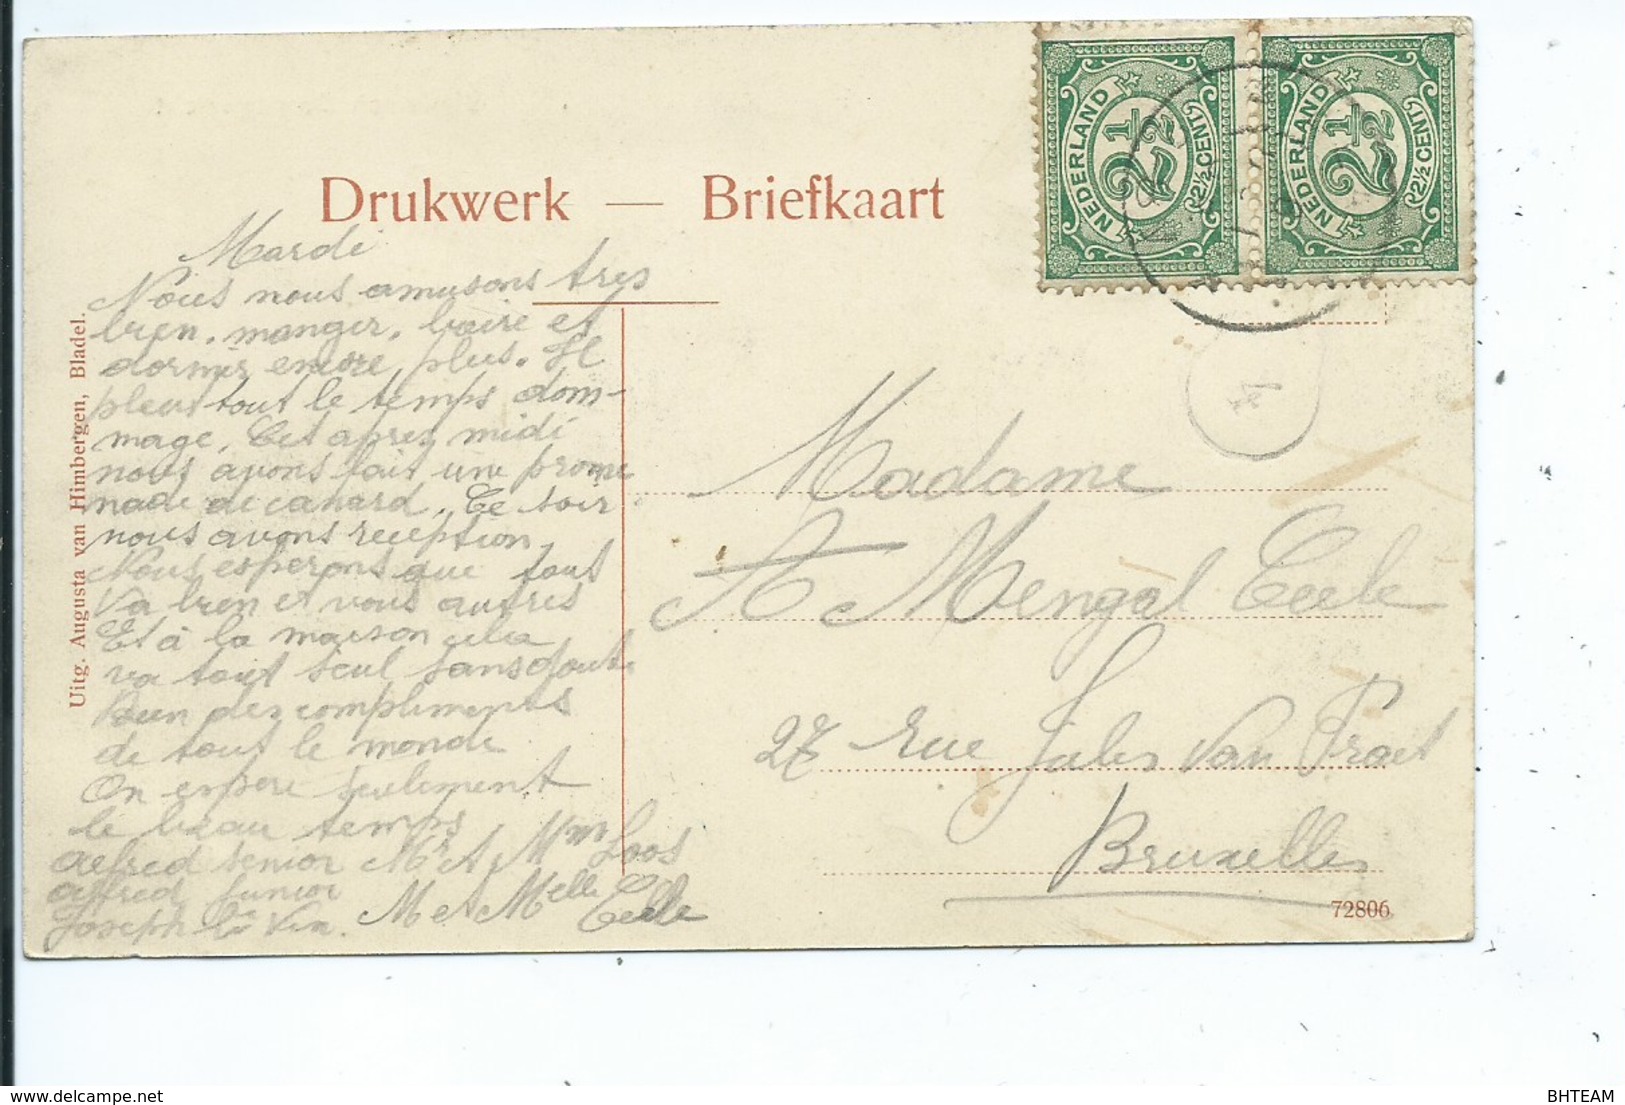 Drukwerk — Briefkaart
NEDERLAND
2½
2½ CENT
NEDERLAND
2½
2½ CENT
Uitg. Augusta van Himbergen, Bladel.
Mardi
Nous nous amusons tres
bien, manger, boire et
dormir encore plus. Il
pleut tout le temps dom-
mage. Cet apres midi
nous avons fait une prome
nade de canard. Ce soir
nous avons reception.
Nous esperons que tout
va bien et vous autres
Et à la maison cela
va tout seul sans dout.
Bien des compliments
de tout le monde
On espere seulement
le beau temps
Alfred senior Mr et Mme Loos
Alfred Junior
Joseph M et Melle Ceele
Madame
A Mengal Ceele
27 rue Jules Van Praet
Bruxelles
72806
BHTEAM